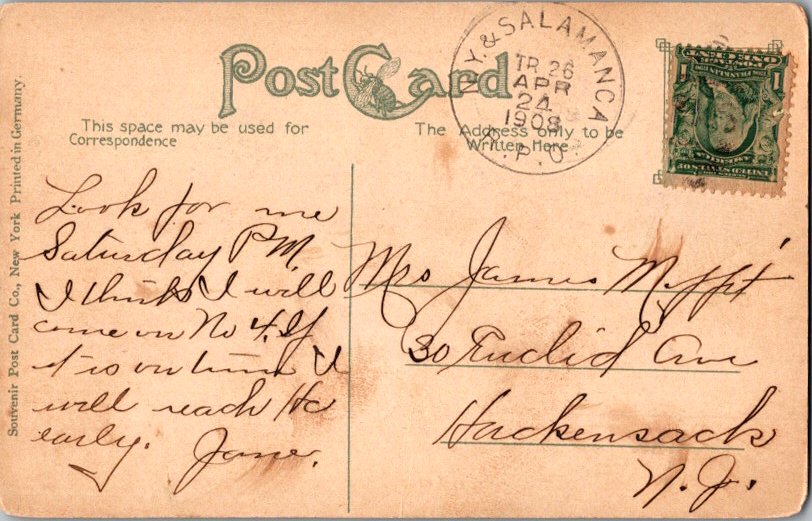 Post Card
This space may be used for
Correspondence
The Address only to be
Written Here
N.Y. & SALAMANCA
TR 26
APR
24
1908
R.P.O.
Look for me
Saturday PM
I think I will
come on No 4. If
it is on time I
will reach Ho
early. Jane.
Mrs James Moffit
30 Euclid Ave
Hackensack
N.J.
Souvenir Post Card Co., New York Printed in Germany.
1
1